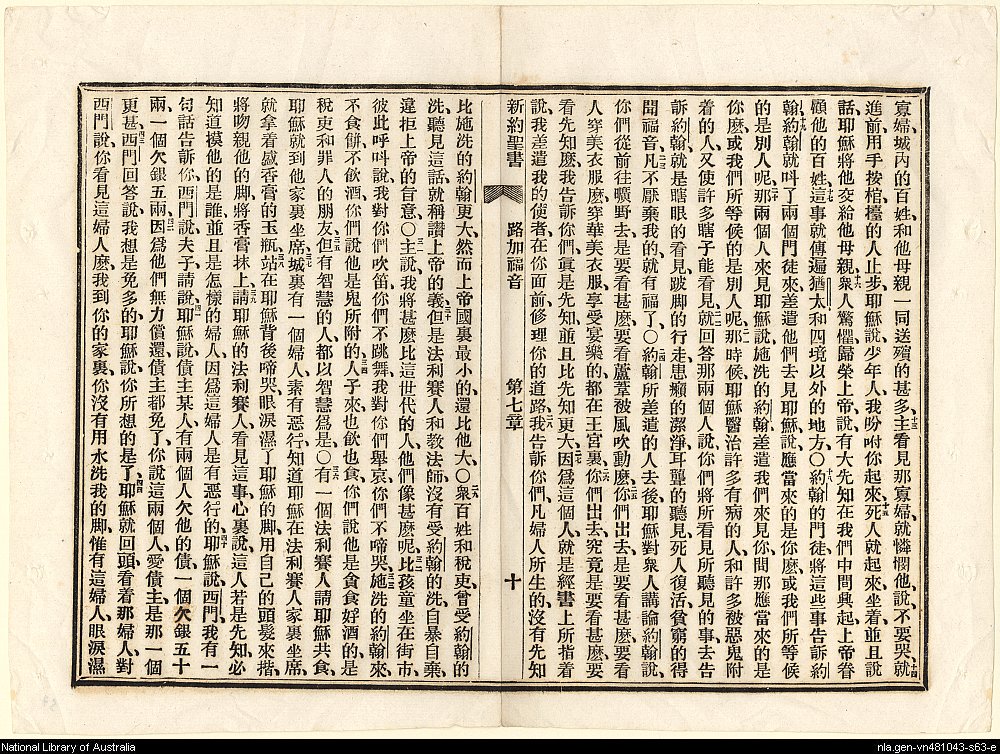 寡婦城內的百姓和他母親一同送殯的甚多、十三主看見那寡婦就憐憫他、說、不要哭、十四就
進前用手按棺、擡的人止步、耶穌說、少年人、我吩咐你起來、十五死人就起來坐着、並且說
話、耶穌將他交給他母親、十六衆人驚懼、歸榮上帝、說、有大先知在我們中間興起、上帝眷
顧他的百姓、十七這事就傳遍猶太和四境以外的地方、〇十八約翰的門徒將這些事告訴約
翰、十九約翰就呌了兩個門徒來、差遣他們去見耶穌說、應當來的是你麽、或我們所等候
的是別人呢、二十那兩個人來見耶穌說、施洗的約翰差遣我們來見你、問那應當來的是
你麽、或我們所等候的是別人呢、二一那時候耶穌醫治許多有病的人、和許多被惡鬼附
着的人、又使許多瞎子能看見、二二就回答那兩個人說、你們將所看見所聽見的事、去告
訴約翰、就是瞎眼的看見、跛脚的行走、患癩的潔淨、耳聾的聽見、死人復活、貧窮的得
聞福音、二三凡不厭棄我的就有福了、〇二四約翰所差遣的人去後、耶穌對衆人講論約翰說、
你們從前往曠野去、是要看甚麽、要看蘆葦被風吹動麽、二五你們出去、是要看甚麽、要看
人穿美衣服麽、穿華美衣服、享受宴樂的、都在王宮裏、二六你們出去、究竟是要看甚麽、要
看先知麽、我告訴你們、眞是先知、並且比先知更大、二七因爲這個人、就是經書上所指着
說、我差遣我的使者在你面前、修理你的道路、二八我告訴你們、凡婦人所生的、沒有先知
新約聖書 路加福音 第七章 十
比施洗的約翰更大、然而上帝國裏最小的、還比他大、〇二九衆百姓和稅吏、曾受約翰的
洗、聽見這話、就稱讚上帝的義、三十但是法利賽人和教法師、沒有受約翰的洗、自暴自棄、
違拒上帝的旨意、〇三一主說、我將甚麽比這世代的人、他們像甚麽呢、三二比孩童坐在街市、
彼此呼呌說、我對你們吹笛、你們不跳舞、我對你們舉哀、你們不啼哭、三三施洗的約翰來、
不食餅不飲酒、你們說他是鬼所附的、三四人子來、也飲也食、你們說他是貪食好酒的、是
稅吏和罪人的朋友、三五但有智慧的人、都以智慧爲是、〇三六有一個法利賽人請耶穌共食、
耶穌就到他家裏坐席、三七城裏有一個婦人、素有惡行、知道耶穌在法利賽人家裏坐席、
就拿着盛香膏的玉瓶、三八站在耶穌背後啼哭、眼淚濕了耶穌的脚、用自己的頭髮來揩、
將吻親他的脚、將香膏抹上、三九請耶穌的法利賽人、看見這事、心裏說、這人若是先知、必
知道摸他的是誰、並且是怎樣的婦人、因爲這婦人是有惡行的、四十耶穌說、西門、我有一
句話告訴你、西門說、夫子請說、四一耶穌說、債主某人、有兩個人欠他的債、一個欠銀五十
兩、一個欠銀五兩、四二因爲他們無力償還、債主都免了、你說這兩個人、愛債主是那一個
更甚、四三西門回答說、我想是免多的、耶穌說、你所想的是了、四四耶穌就回頭看着那婦人、對
西門說、你看見這婦人麽、我到你的家裏、你沒有用水洗我的脚、惟有這婦人、眼淚濕
National Library of Australia
nla.gen-vn481043-s63-e